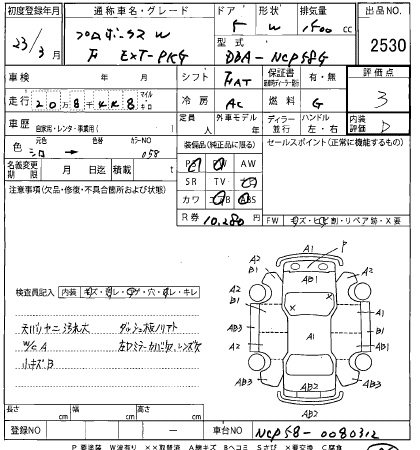 初度登録年月 通称車名・グレード ドア 形状 排気量 出品NO.
23/3月 プロボックス W 5 W 1500 cc 2530
F EXT-PKG 型式 DBA-NCP58G
車検 年 月 シフト FAT 保証書 有・無 評価点
走行 20万8千448 マイル キロ 冷房 AC 燃料 G 3
車歴 自家用・レンタ・事業用( ) 定員 人 外車モデル 年 ディーラー 並行 ハンドル 左・右 内装評価 D
色 元色 シロ → 色替 カラーNO 058 装備品(純正品に限る) セールスポイント(正常に機能するもの)
PS PW AW
名義変更期限 月 日迄 積載 t SR TV ナビ
カワ エアB ABS
注意事項(欠品・修復・不具合箇所および状態) R券 10,280 円 FW キズ・ヒビ割・リペア跡・X要
A1 P
A2 B1 AB1 A2 B1
A1 B1
AB3 A1 AB3
A2 A2
AB3 AB3
AB2
AB2
検査員記入 内装 キズ・ヨゴレ・コゲ・穴・ハガレ・キレ
天バリヤニ汚れ大 ダッシュ板ノリアト
W/C A 左ドアミラーカバー欠、レンズ欠
小キズ、B
長さ cm 幅 cm 高さ cm
登録NO — 車台NO NCP58-0080312
P要塗装 W波有り ××取替済 A線キズ Bヘコミ Sさび ×要交換 C腐食